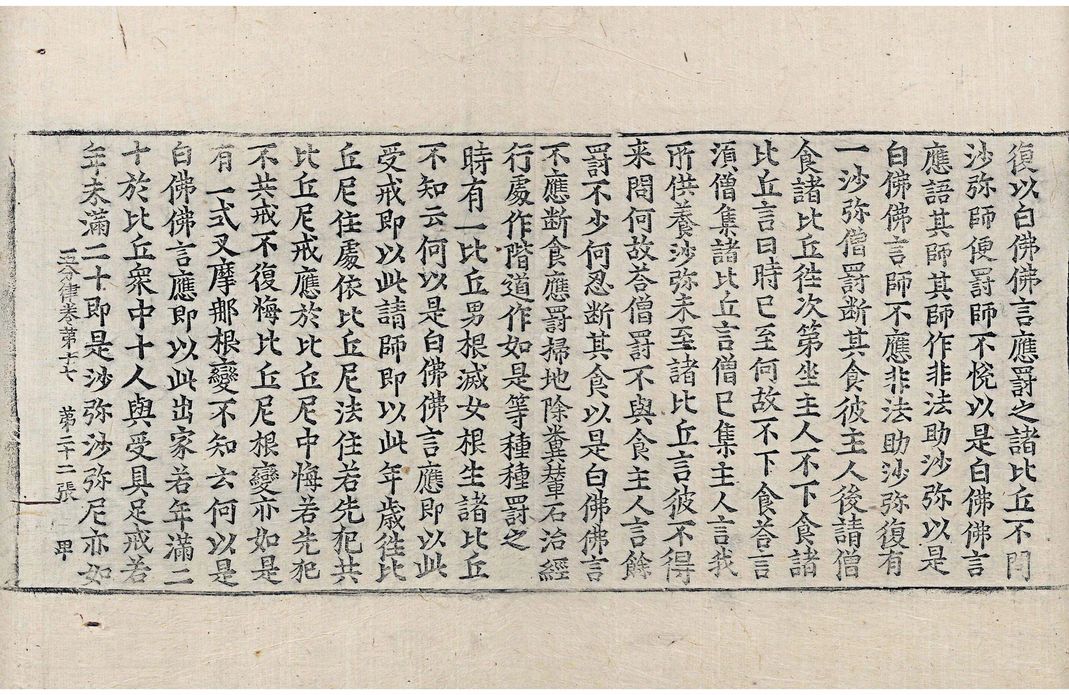 復以白佛佛言應罸之諸比丘不問
沙弥師便罸師不恱以是白佛佛言
應語其師其師作非法助沙弥以是
白佛佛言師不應非法助沙弥復有
一沙弥僧罸断其食彼主人後請僧
食諸比丘徃次第坐主人不下食諸
比丘言日時已至何故不下食荅言
湏僧集諸比丘言僧已集主人言我
所供養沙弥未至諸比丘言彼不得
来問何故荅僧罸不與食主人言餘
罸不少何忍断其食以是白佛佛言
不應断食應罸掃地除糞輦石治經
行處作階道作如是等種種罸之
時有一比丘男根滅女根生諸比丘
不知云何以是白佛佛言應即以此
受戒即以此請師即以此年歳徃比
丘尼住處依比丘尼法住若先犯共
比丘尼戒應於比丘尼中悔若先犯
不共戒不復悔比丘尼根變亦如是
有一式叉摩那根變不知云何以是
白佛佛言應即以此出家若年滿二
十於比丘衆中十人與受具足戒若
年未滿二十即是沙弥沙弥尼亦如
五分律卷第十七 第二十二張